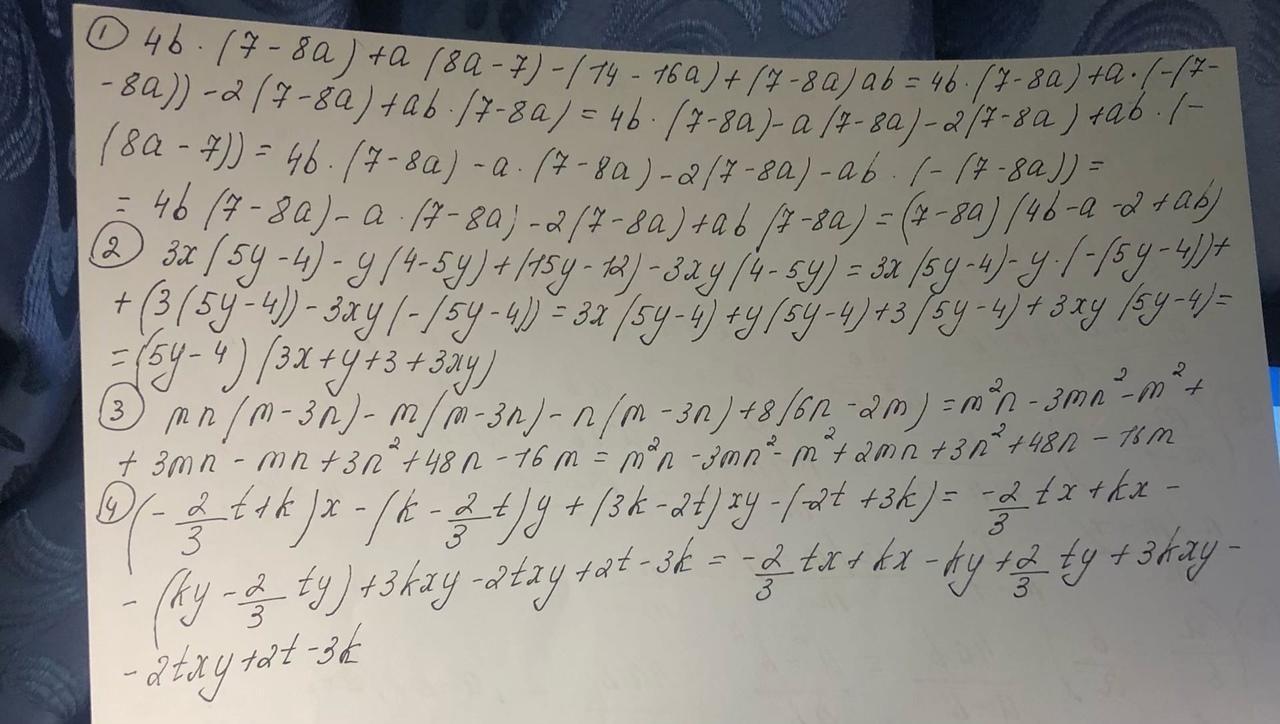 ① 4b · (7 - 8a) + a (8a - 7) - (14 - 16a) + (7 - 8a) ab = 4b · (7 - 8a) + a · (- (7 -
- 8a)) - 2 (7 - 8a) + ab · (7 - 8a) = 4b · (7 - 8a) - a (7 - 8a) - 2 (7 - 8a) + ab · (-
(8a - 7)) = 4b · (7 - 8a) - a · (7 - 8a) - 2 (7 - 8a) - ab · (- (7 - 8a)) =
= 4b (7 - 8a) - a · (7 - 8a) - 2 (7 - 8a) + ab (7 - 8a) = (7 - 8a) (4b - a - 2 + ab)
② 3x (5y - 4) - y (4 - 5y) + (15y - 12) - 3xy (4 - 5y) = 3x (5y - 4) - y · (- (5y - 4)) +
+ (3 (5y - 4)) - 3xy (- (5y - 4)) = 3x (5y - 4) + y (5y - 4) + 3 (5y - 4) + 3xy (5y - 4) =
= (5y - 4) (3x + y + 3 + 3xy)
③ mn (m - 3n) - m (m - 3n) - n (m - 3n) + 8 (6n - 2m) = m²n - 3mn² - m² +
+ 3mn - mn + 3n² + 48n - 16m = m²n - 3mn² - m² + 2mn + 3n² + 48n - 16m
④ (- 2/3 t + k) x - (k - 2/3 t) y + (3k - 2t) xy - (-2t + 3k) = - 2/3 tx + kx -
- (ky - 2/3 ty) + 3kxy - 2txy + 2t - 3k = - 2/3 tx + kx - ky + 2/3 ty + 3kxy -
- 2txy + 2t - 3k